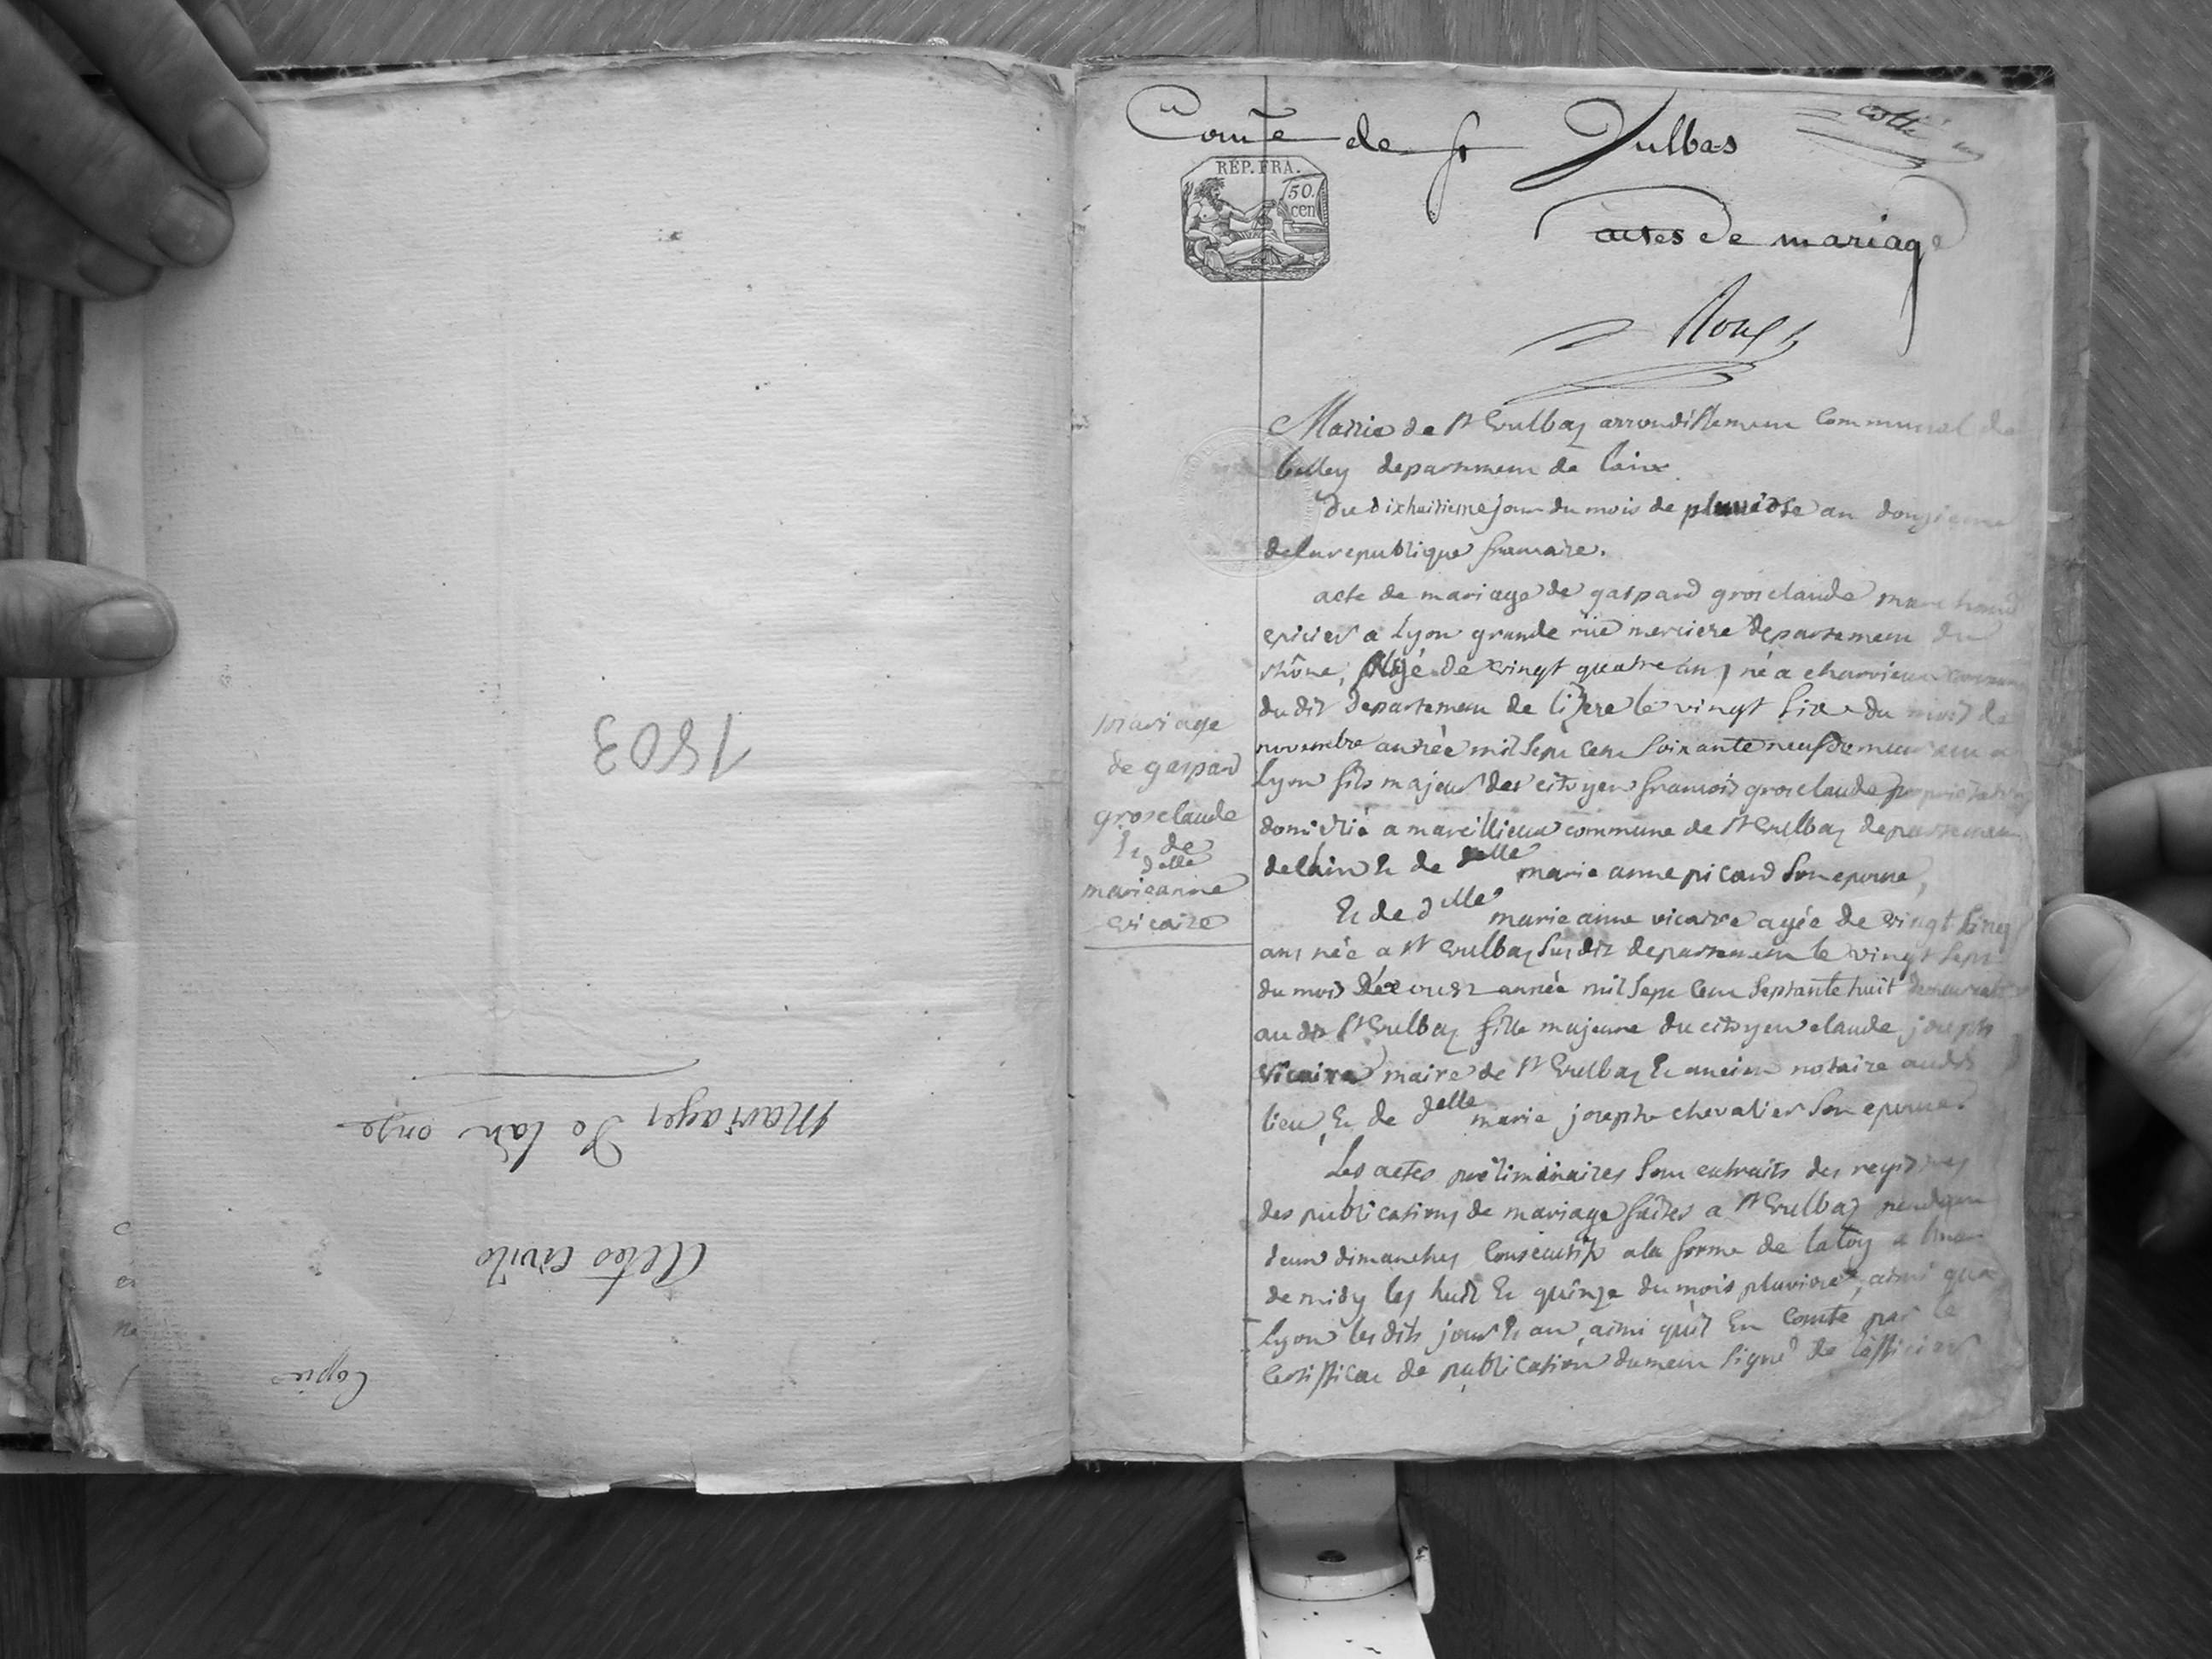 1803
Mariages De l'an onze
Actes Civils
Copie
Comᵉ de St Vulbas
cotté
RÉP. FRA.
50.
cen
actes de mariage
Roux
Mairie de St Vulbaz arrondissement Communal de
belley departement de lain
du dixhuitieme jour du mois de pluviose an douzieme
de la republique francaise.
acte de mariage de gaspard grosclaude marchand
epicier a Lyon grande rüe merciere departement du
rhône, âgé de vingt quatre ans, né a charvieux commune
du dit departement de lizere le vingt six du mois de
novembre année mil sept cent soixante neuf demeurant a
Lyon fils majeur des citoyen francois grosclaude proprietaire
domicilié a marcillieux commune de St Vulbaz departement
de lain & de delle marie anne picard son epouse,
mariage
de gaspard
grosclaude
& de
delle
marieanne
vicaire
& de delle marie anne vicaire agée de vingt cinq
ans née a St Vulbaz susdit departement le vingt sept
du mois aoust année mil sept cent septante huit demeurante
au dit St Vulbaz fille majeure du citoyen claude joseph
vicaire maire de St Vulbaz & ancien notaire audit
lieu, & de delle marie joseph chevalier son epouse.
Les actes préliminaires sont extraits des registres
des publications de mariage faites a St Vulbaz pendant
deux dimanches consecutifs a la forme de la loy a
de midy les huit & quinze du mois pluviose, ainsi qua
Lyon les dits jours & an, ainsi quil en conste par le
certifficat de publication dument signé de lofficier